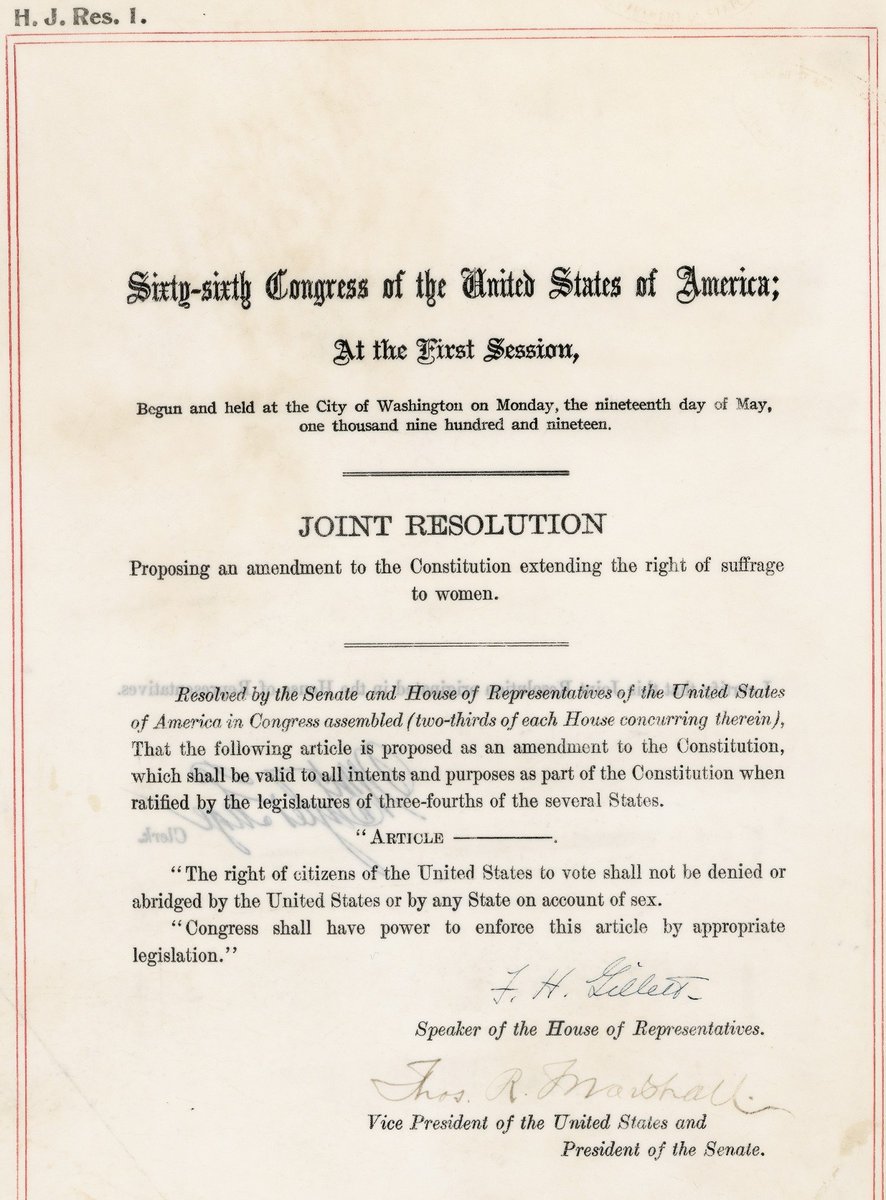 H. J. Res. 1.
Sixty-sixth Congress of the United States of America;
At the First Session,
Begun and held at the City of Washington on Monday, the nineteenth day of May,
one thousand nine hundred and nineteen.
JOINT RESOLUTION
Proposing an amendment to the Constitution extending the right of suffrage
to women.
Resolved by the Senate and House of Representatives of the United States
of America in Congress assembled (two-thirds of each House concurring therein),
That the following article is proposed as an amendment to the Constitution,
which shall be valid to all intents and purposes as part of the Constitution when
ratified by the legislatures of three-fourths of the several States.
“ARTICLE ————.
“The right of citizens of the United States to vote shall not be denied or
abridged by the United States or by any State on account of sex.
“Congress shall have power to enforce this article by appropriate
legislation.”
F. H. Gillett
Speaker of the House of Representatives.
Thos. R. Marshall.
Vice President of the United States and
President of the Senate.